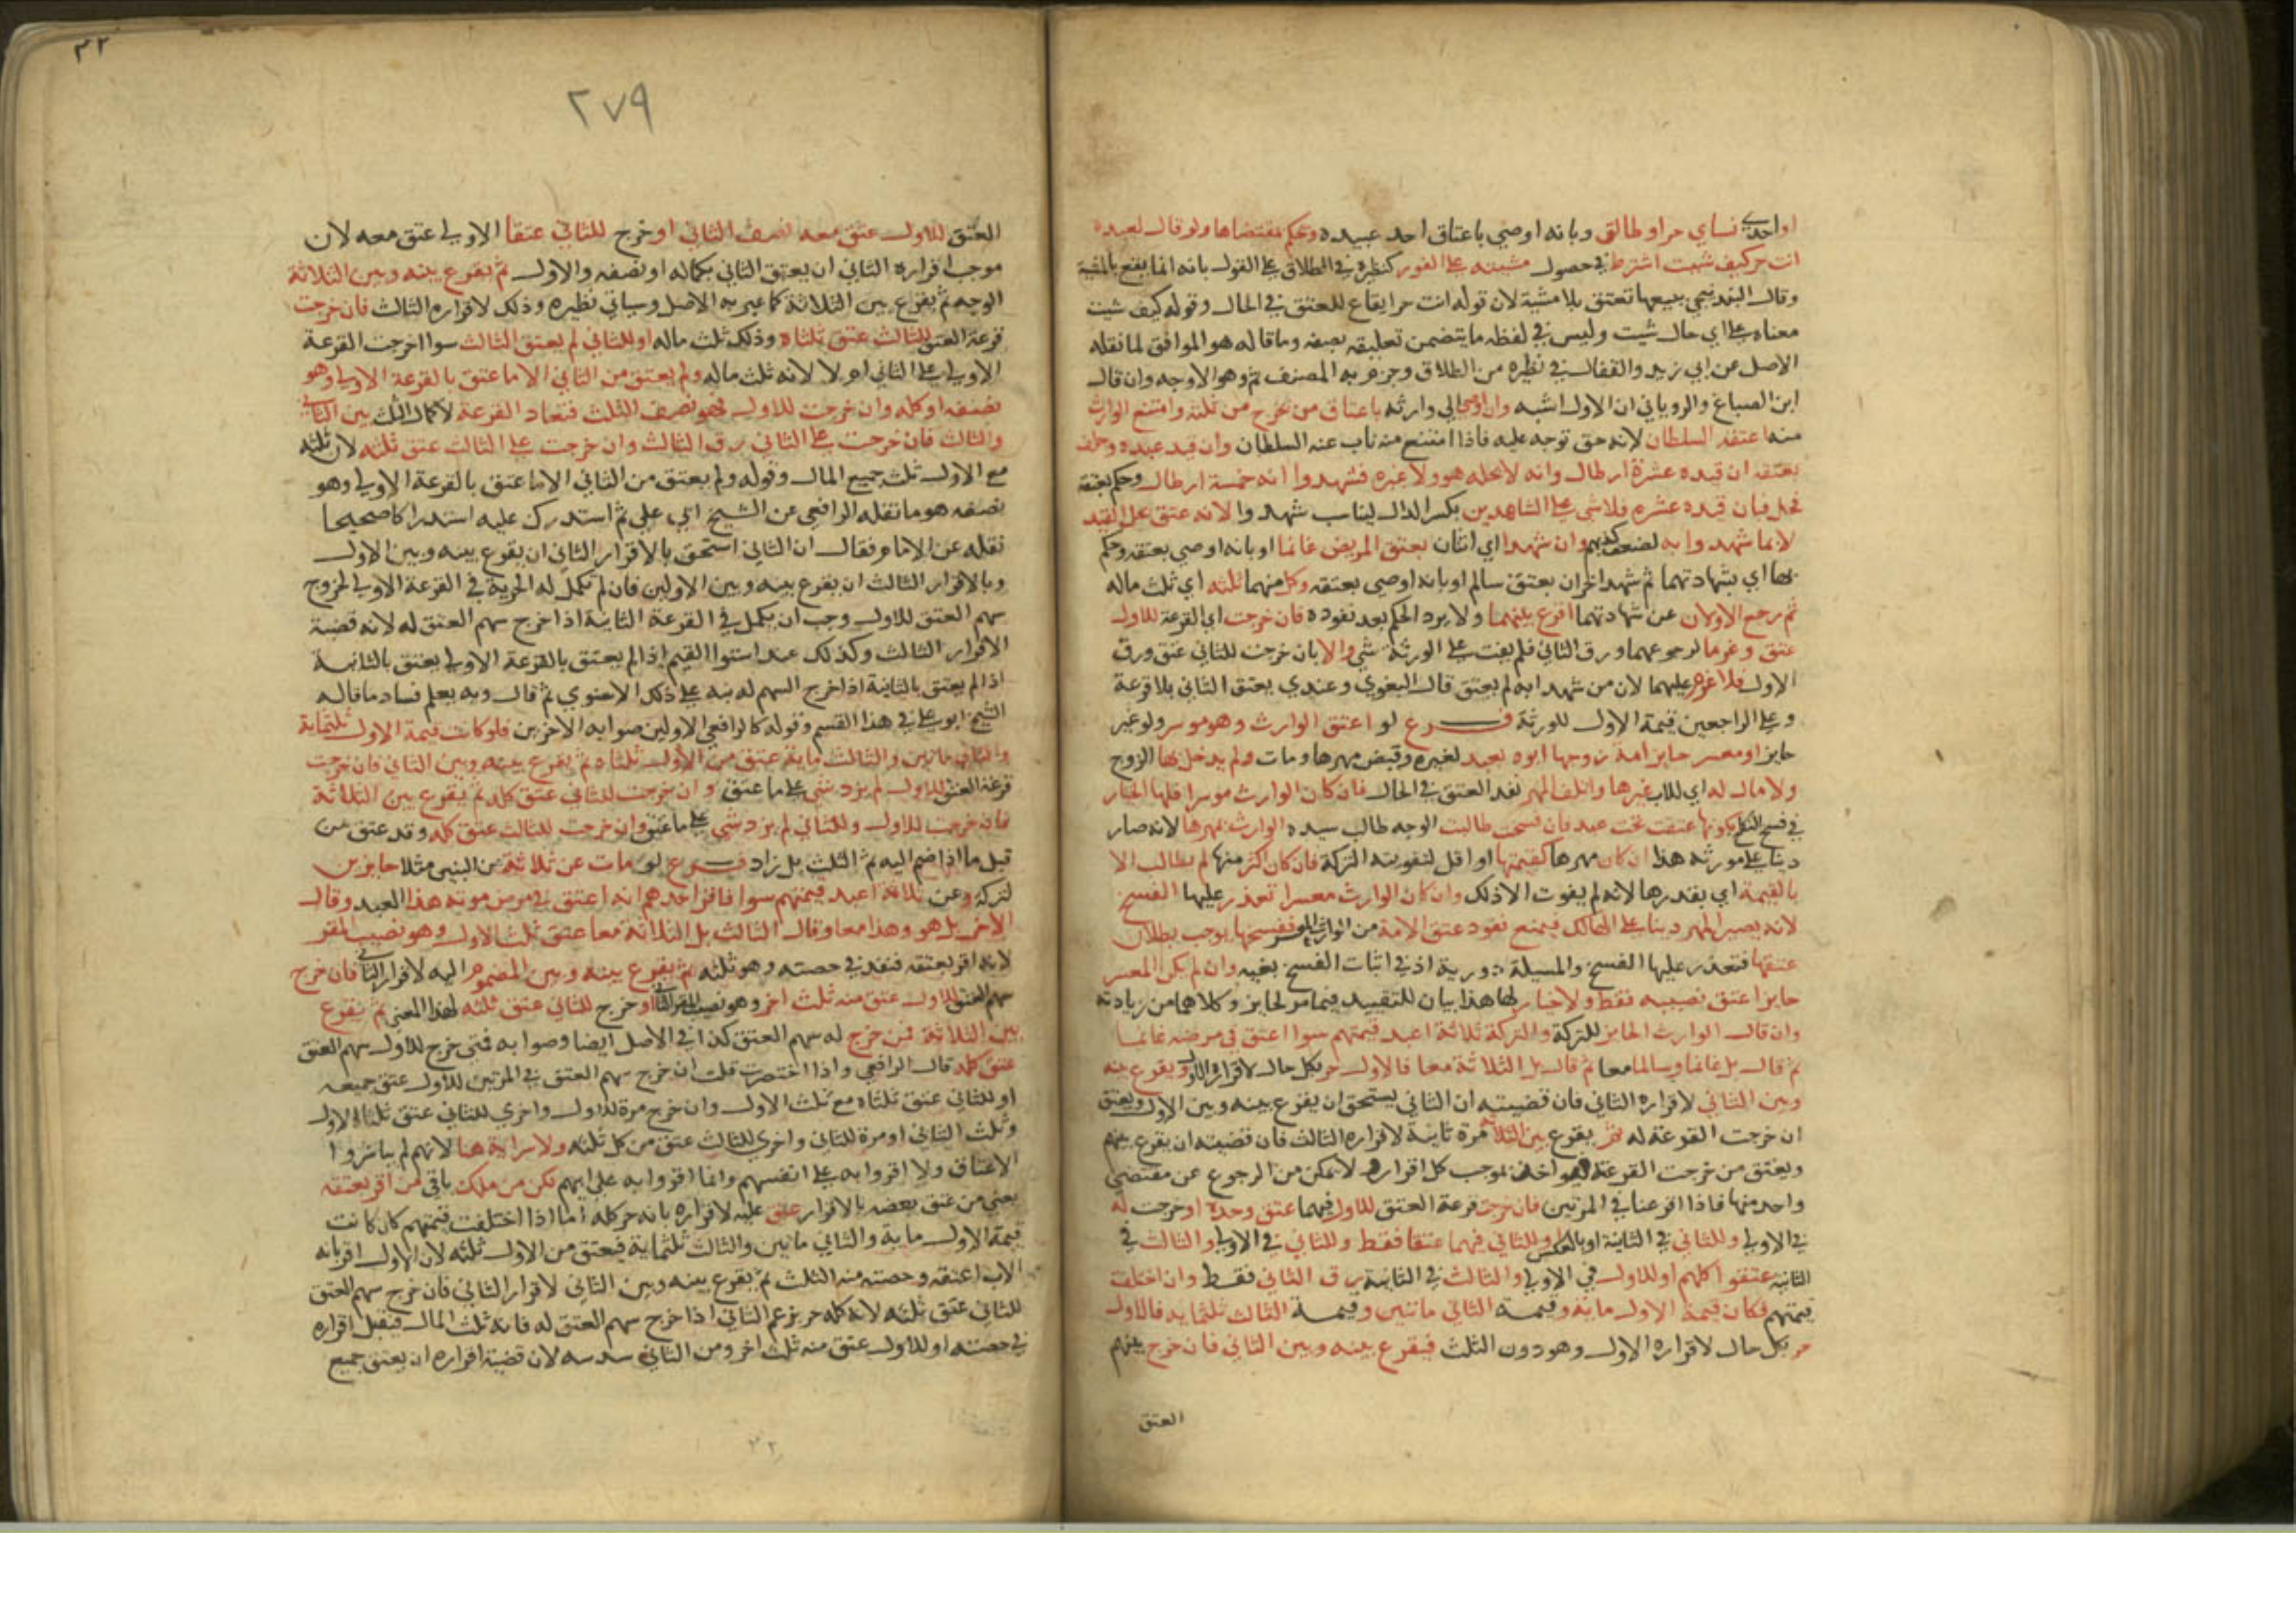 او احدى نساي حر او طالق وبانه اوصي باعتاق احد عبيده وحكم مقتضاها ولو قال لعبده
انت حر كيف شيت اشترط في حصول مشيته على الفور كنظيره في الطلاق على القول بانه انما يقع بالمشية
وقال البندنيجي ببيعها تعتق بلا مشية لان قوله انت حر ايقاع للعتق في الحال وقوله كيف شيت
معناه على اي حال شيت وليس في لفظه ما يتضمن تعليقه بصفه وما قاله هو الموافق لما نقله
الاصل عن ابي زيد والقفال في نظيره من الطلاق وجزم به المصنف ثم وهو الاوجه وان قال
ابن الصباغ والروياني ان الاول اشبه وان اوصى الى وارثه باعتاق من يخرج من ثلثه وامتنع الوارث
منه اعتقه السلطان لانه حق توجه عليه فاذا امتنع منه ناب عنه السلطان وان قيد عبده وحلف
بعتقه ان قيده عشرة ارطال وانه لا يحله هو ولا غيره فشهدوا انه خمسة ارطال وحكم بعتقه
فحل فبان قيده عشره فلا شي على الشاهدين بكسر الدال ليناسب شهدوا لانه عتق بحل القيد
لا بما شهدوا به لتحقق كذبهم وان شهدا اي اثنان بعتق المريض غانما او بانه اوصي بعتقه وحكم
بها اي بشهادتهما ثم شهد اخران بعتق سالم او بانه اوصي بعتقه وكل منهما ثلثه اي ثلث ماله
ثم رجع الاولان عن شهادتهما اقرع بينهما ولا يرد الحكم بعد نفوذه فان خرجت اي القرعة للاول
عتق وغرما لرجوعهما ورق الثاني فلم يفت على الورثة شي والا بان خرجت للثاني عتق ورق
الاول فلا غرم عليهما لان من شهدا به لم يعتق قال البغوي وعندي يعتق الثاني بلا قرعة
وعلى الراجعين قيمة الاول للورثة فــرع لو اعتق الوارث وهو موسر ولو غير
حايز او معسر حايز امة زوجها ابوه بعبد لغيره وقبض مهرها ومات ولم يدخل بها الزوج
ولا مال له اي للاب غيرها واتلف المهر نفذ العتق في الحال فان كان الوارث موسرا فلها الخيار
في فسخ النكاح لانها عتقت تحت عبد فان فسخت طالبت الوجه طالب سيده الوارث بمهرها لانه صار
دينا على مورثه هذا ان كان مهرها كقيمتها او اقل لتفويته التركة فان كان اكثر منها لم يطالب الا
بالقيمة اي بقدرها لانه لم يفوت الا ذلك وان كان الوارث معسرا تعذر عليها الفسخ
لانه يصير المهر دينا على الهالك فيمنع نفوذ عتق الامة من الوارث المعسر ففسخها يوجب بطلان
عتقها فتعذر عليها الفسخ والمسيلة دورية اذ في اثبات الفسخ نفيه وان لم يكن المعسر
حايزا عتق نصيبه فقط ولا خيار لها هذا بيان للتقييد فيما مر لحايز وكلاهما من زيادته
وان قال الوارث الحايز للتركة والتركة ثلاثة اعبد قيمتهم سوا اعتق في مرضه غانما
ثم قال بل غانما وسالما معا ثم قال بل الثلاثة معا فالاول حر بكل حال لاقراره الاول ويقرع بينه
وبين الثاني لاقراره الثاني فان قضيته ان الثاني يستحق ان يقرع بينه وبين الاول ويعتق
ان خرجت القرعة له ثم يقرع بين الثلاثة مرة ثانية لاقراره الثالث فان قضيته ان يقرع بينهم
ويعتق من خرجت القرعة له مواخذة بموجب كل اقراره لا يمكن من الرجوع عن مقتضي
واحد منها فاذا اقرعنا في المرتين فان خرجت قرعة العتق للاول فيهما عتق وحده او خرجت له
في الاولى وللثاني في الثانية او بالعكس وللثاني فيهما عتقا فقط وللثاني في الاولى والثالث في
الثانية عتقوا كلهم او للاول في الاولى والثالث في الثانية رق الثاني فقط وان اختلفت
قيمتهم فكان قيمة الاول ماية وقيمة الثاني ماتين وقيمة الثالث ثلثماية فالاول
حر بكل حال لاقراره الاول وهو دون الثلث فيقرع بينه وبين الثاني فان خرج بينهم
العتق
٣٢
٢٧٩
العتق للاول عتق معه نصف الثاني او خرج للثاني عتقا الاولى عتق معه لان
موجب اقراره الثاني ان يعتق الثاني بكماله او نصفه والاول ثم يقرع بينه وبين الثلاثة
الوجه ثم يقرع بين الثلاثة كما عبر به الاصل وسياتي نظيره وذلك لاقراره الثالث فان خرجت
قرعة العتق للثالث عتق ثلثاه وذلك ثلث ماله او للثاني لم يعتق الثالث سوا اخرجت القرعة
الاولى على الثاني ام لا لانه ثلث ماله ولم يعتق من الثاني الا ما عتق بالقرعة الاولى وهو
نصفه او كله وان خرجت للاول فهو نصف الثلث فتعاد القرعة لاكمال الثلث بين الثاني
والثالث فان خرجت على الثاني رق الثالث وان خرجت على الثالث عتق ثلثه لان ثلثه
مع الاول ثلث جميع المال وقوله ولم يعتق من الثاني الا ما عتق بالقرعة الاولى وهو
نصفه هو ما نقله الرافعي عن الشيخ ابي علي ثم استدرك عليه استدراكا صحيحا
نقله عن الامام فقال ان الثاني استحق بالاقرار الثاني ان يقرع بينه وبين الاول
وبالاقرار الثالث ان يقرع بينه وبين الاولين فان لم تكمل له الحرية في القرعة الاولى لخروج
سهم العتق للاول وجب ان يكمل في القرعة الثانية اذا خرج سهم العتق له لانه قضية
الاقرار الثالث وكذلك عند استوا القيم اذا لم يعتق بالقرعة الاولى يعتق بالثانية
اذا لم يعتق بالثانية اذا خرج السهم له نبه على ذلك الاسنوي ثم قال وبه يعلم فساد ما قاله
الشيخ ابو علي في هذا القسم وقوله كالرافعي الاولين صوابه الاخرين فلو كانت قيمة الاول ثلثماية
والثاني ماتين والثالث ماية عتق من الاول ثلثاه ثم يقرع بينه وبين الثاني فان خرجت
قرعة العتق للاول لم يزد شي على ما عتق وان خرجت للثاني عتق كله ثم يقرع بين الثلاثة
فان خرجت للاول وللثاني لم يزد شي على ما عتق وان خرجت للثالث عتق كله وقد عتق من
قبل ما اذا ضم اليه تم الثلث بل زاد فــرع لو مات عن ثلاثة من البنين مثلا حايزين
لتركة وعن ثلاثة اعبد قيمتهم سوا فاقر احدهم انه اعتق في مرض موته هذا العبد وقال
الاخر بل هو وهذا معا وقال الثالث بل الثلاثة معا عتق ثلث الاول وهو نصيب المقر
لانه اقر بعتقه فنفذ في حصته وهو ثلثه ثم يقرع بينه وبين المضموم اليه لاقرار الثاني فان خرج
سهم العتق للاول عتق منه ثلث اخر وهو نصيب المقر الثاني او خرج للثاني عتق ثلثه لهذا المعنى ثم يقرع
بين الثلاثة فمن خرج له سهم العتق كذا في الاصل ايضا وصوابه فمتى خرج للاول سهم العتق
عتق كله قال الرافعي واذا اختصرت قلت ان خرج سهم العتق في المرتين للاول عتق جميعه
او للثاني عتق ثلثاه مع ثلث الاول وان خرج مرة للاول واخري للثاني عتق ثلثا الاول
وثلث الثاني او مرة للثاني واخري للثالث عتق من كل ثلثه ولا سراية هنا لانهم لم يباشروا
الاعتاق ولا اقروا به على انفسهم وانما اقروا به على ابيهم لكن من ملك باقي من اقر بعتقه
يعني من عتق بعضه بالاقرار عتق عليه لاقراره بانه حر كله اما اذا اختلفت قيمتهم كان كانت
قيمة الاول ماية والثاني ماتين والثالث ثلثماية فيعتق من الاول ثلثه لان الاول اقر بانه
الاب اعتقه وحصته منه الثلث ثم يقرع بينه وبين الثاني لاقرار الثاني فان خرج سهم العتق
للثاني عتق ثلثه لانه كله حر بزعم الثاني اذا خرج سهم العتق له فانه ثلث المال فيقبل اقراره
في حصته او للاول عتق منه ثلث اخر ومن الثاني سدسه لان قضية اقراره ان يعتق جميع